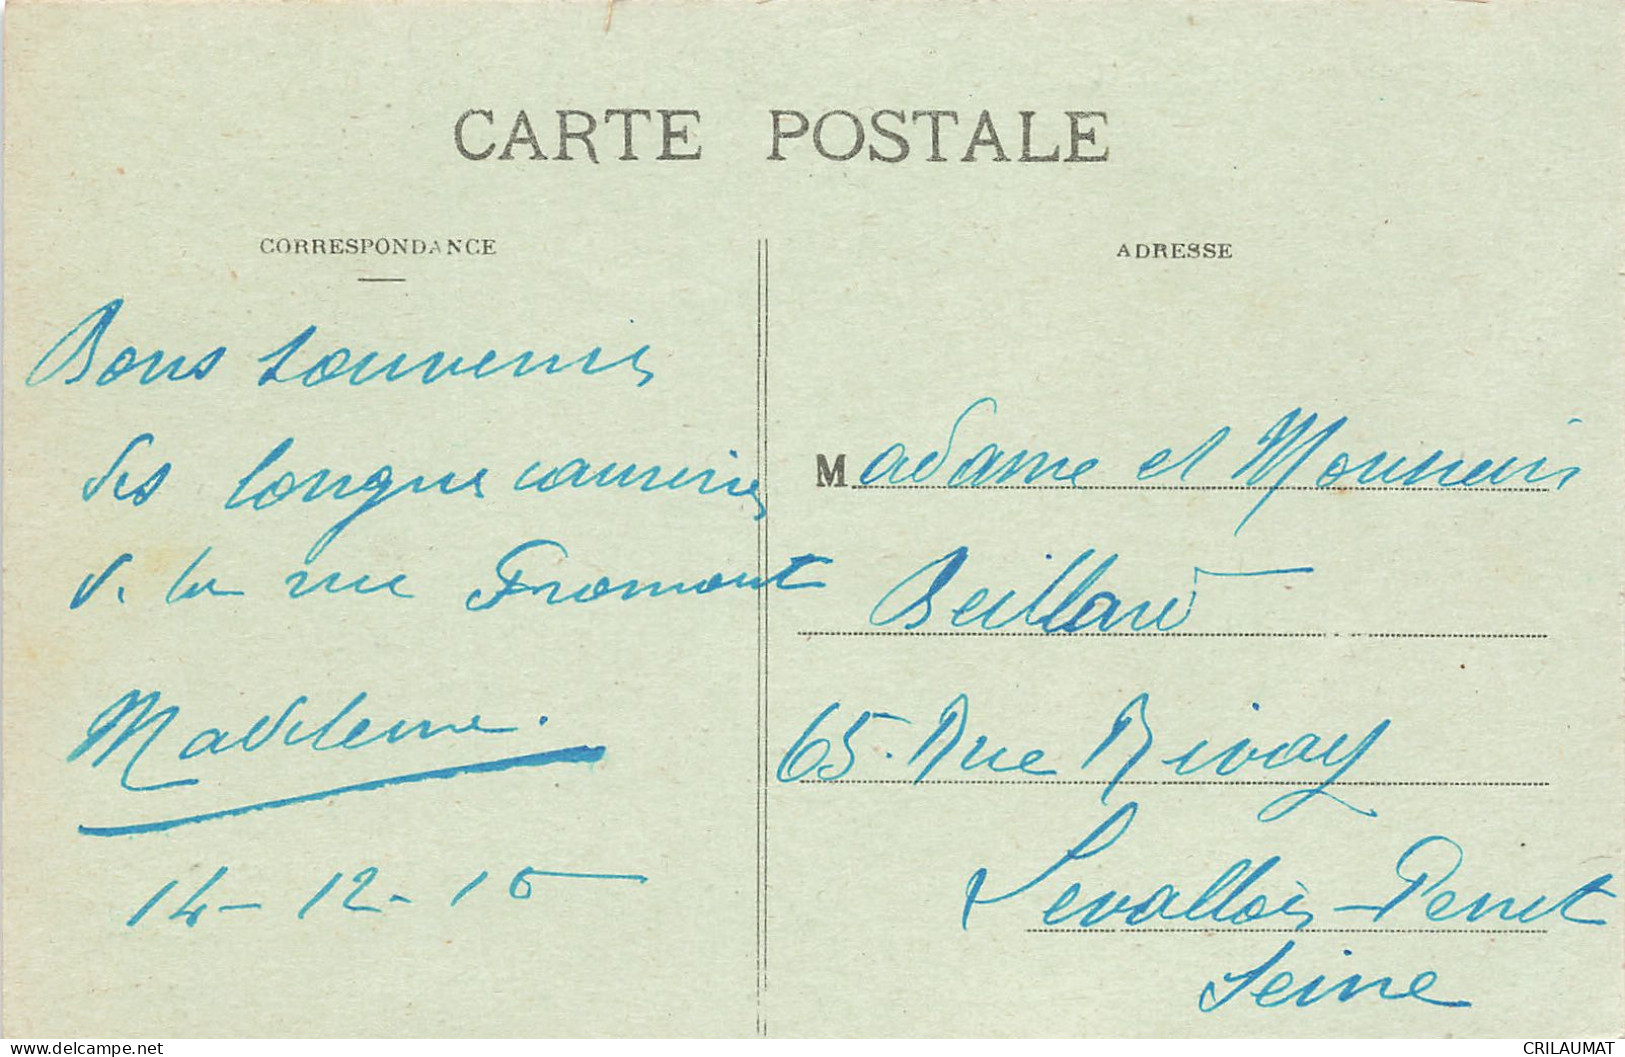 CARTE POSTALE
CORRESPONDANCE
Bons souvenirs
des longues causeries
d. la rue Fromont
Madeleine.
14-12-15
ADRESSE
Madame et Monsieur
Beillard
65. Rue Rivay
Levallois-Perret
Seine
www.delcampe.net
CRILAUMAT